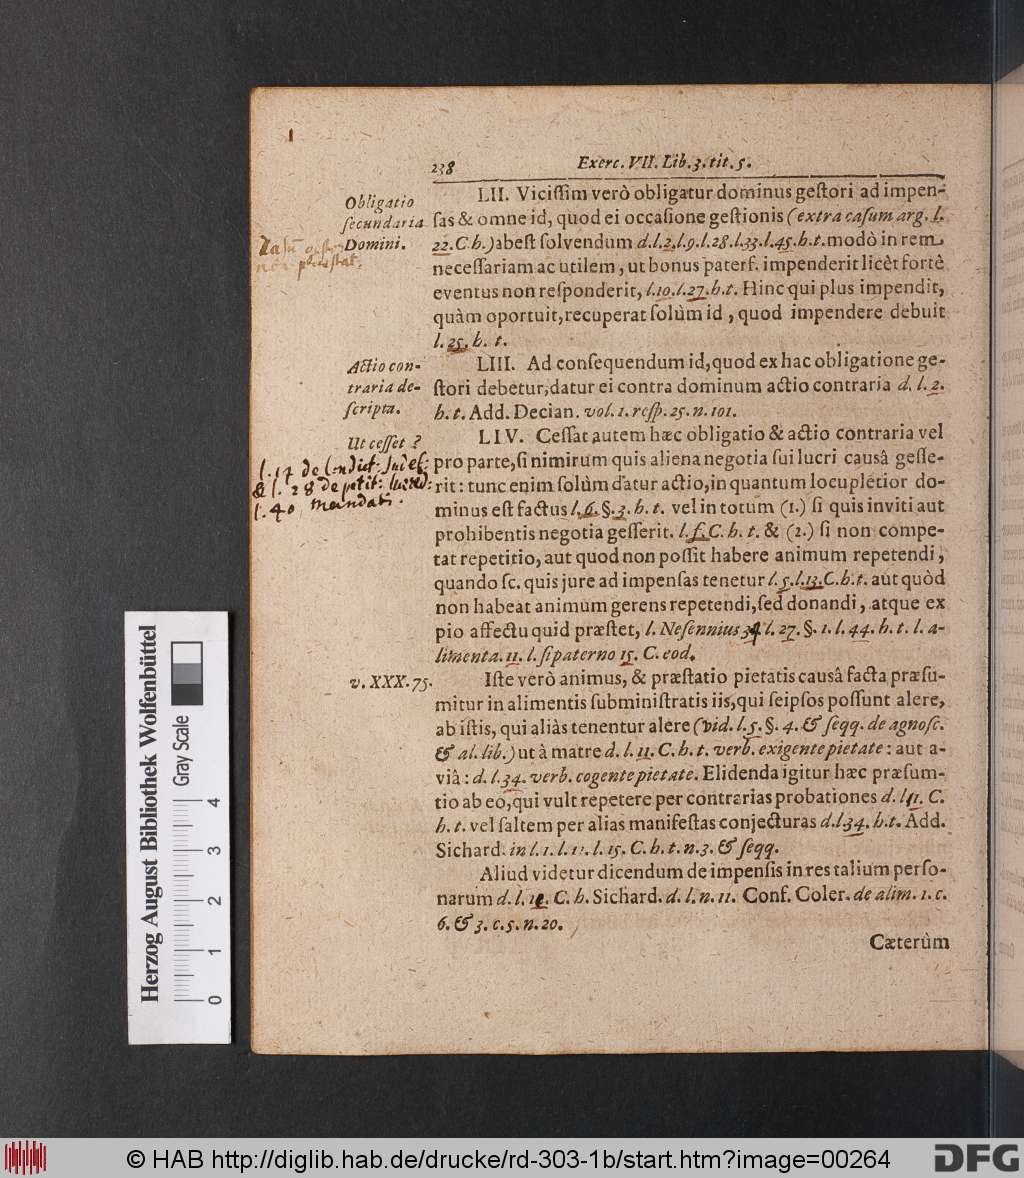 238 Exerc. VII. Lib. 3. tit. 5.
Obligatio
ſecundaria
Domini.
LII. Viciſſim verò obligatur dominus geſtori ad impen-
ſas & omne id, quod ei occaſione geſtionis (extra caſum arg. l.
22. C. h.) abeſt ſolvendum d. l. 2. l. 9. l. 28. l. 33. l. 45. h. t. modò in rem
neceſſariam ac utilem, ut bonus paterf. impenderit licèt fortè
eventus non reſponderit, l. 10. l. 27. h. t. Hinc qui plus impendit,
quàm oportuit, recuperat ſolùm id, quod impendere debuit
l. 25. h. t.
Actio con-
traria de-
ſcripta.
LIII. Ad conſequendum id, quod ex hac obligatione ge-
ſtori debetur, datur ei contra dominum actio contraria d. l. 2.
h. t. Add. Decian. vol. 1. reſp. 25. n. 101.
Ut ceſſet ?
l. 17 de Condict: Indeb:
& l. 28 de petit: hered:
l. 40 mandati.
LIV. Ceſſat autem hæc obligatio & actio contraria vel
pro parte, ſi nimirum quis aliena negotia ſui lucri causâ geſſe-
rit: tunc enim ſolùm datur actio, in quantum locupletior do-
minus eſt factus l. 6. §. 3. h. t. vel in totum (1.) ſi quis inviti aut
prohibentis negotia geſſerit. l. f. C. h. t. & (2.) ſi non compe-
tat repetitio, aut quod non poſſit habere animum repetendi,
quando ſc. quis jure ad impenſas tenetur l. 5. l. 13. C. h. t. aut quòd
non habeat animum gerens repetendi, ſed donandi, atque ex
pio affectu quid præſtet, l. Neſennius 34 l. 27. §. 1. l. 44. h. t. l. a-
limenta. 11. l. ſi paterno 15. C. eod.
v. XXX. 75.
Iſte verò animus, & præſtatio pietatis causâ facta præſu-
mitur in alimentis ſubminiſtratis iis, qui ſeipſos poſſunt alere,
ab iſtis, qui aliàs tenentur alere (vid. l. 5. §. 4. & ſeqq. de agnoſc.
& al. lib.) ut à matre d. l. 11. C. h. t. verb. exigente pietate: aut a-
viâ: d. l. 34. verb. cogente pietate. Elidenda igitur hæc præſum-
tio ab eo, qui vult repetere per contrarias probationes d. l. 11. C.
h. t. vel ſaltem per alias manifeſtas conjecturas d. l. 34. h. t. Add.
Sichard. in l. 1. l. 11. l. 15. C. h. t. n. 3. & ſeqq.
Aliud videtur dicendum de impenſis in res talium perſo-
narum d. l. 11. C. h. Sichard. d. l. n. 11. Conf. Coler. de alim. 1. c.
6. & 3. c. 5. n. 20.
Cæterùm
Herzog August Bibliothek Wolfenbüttel
Gray Scale
0 1 2 3 4
© HAB http://diglib.hab.de/drucke/rd-303-1b/start.htm?image=00264
DFG